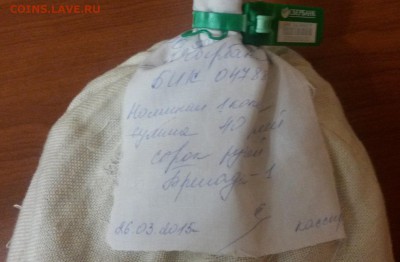 COINS.LAVE.RU
СБЕРБАНК
Сбербанк
БИК 0478
Номинал 1 коп
сумма 40 руб
сорок рублей
Бригада-1
26.03.2015
кассир